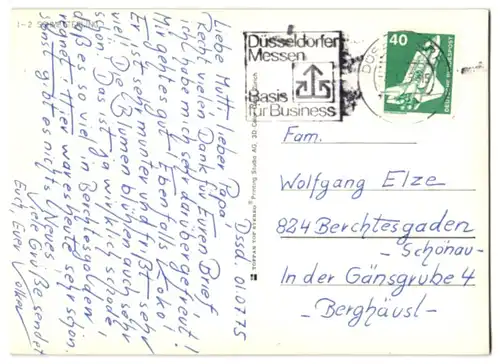 1-2 SCHMETTERLING
Dssd. 01.07.75
Liebe Mutti, lieber Papa!
Recht vielen Dank für Euren Brief,
ich habe mich sehr darüber gefreut!
Mir geht es gut! Ebenfalls Koko!
Er ist sehr munter und frißt sehr
viel. Die Blumen blühen auch sehr
schön. Das ist ja wirklich schade,
daß es so viel in Berchtesgaden
regnet. Hier war es heute sehr schön.
Sonst gibt es nichts Neues!
Viele Grüße sendet
Euch, Euer Volker
TOPPAN TOP STEREO® Printing Studio AG, 3D-Cards, Zürich
Düsseldorfer
Messen
Basis
für Business
DÜSS
40
DEUTSCHE BUNDESPOST
Fam.
Wolfgang Elze
824 Berchtesgaden
- Schönau -
In der Gänsgrube 4
- Berghäusl -